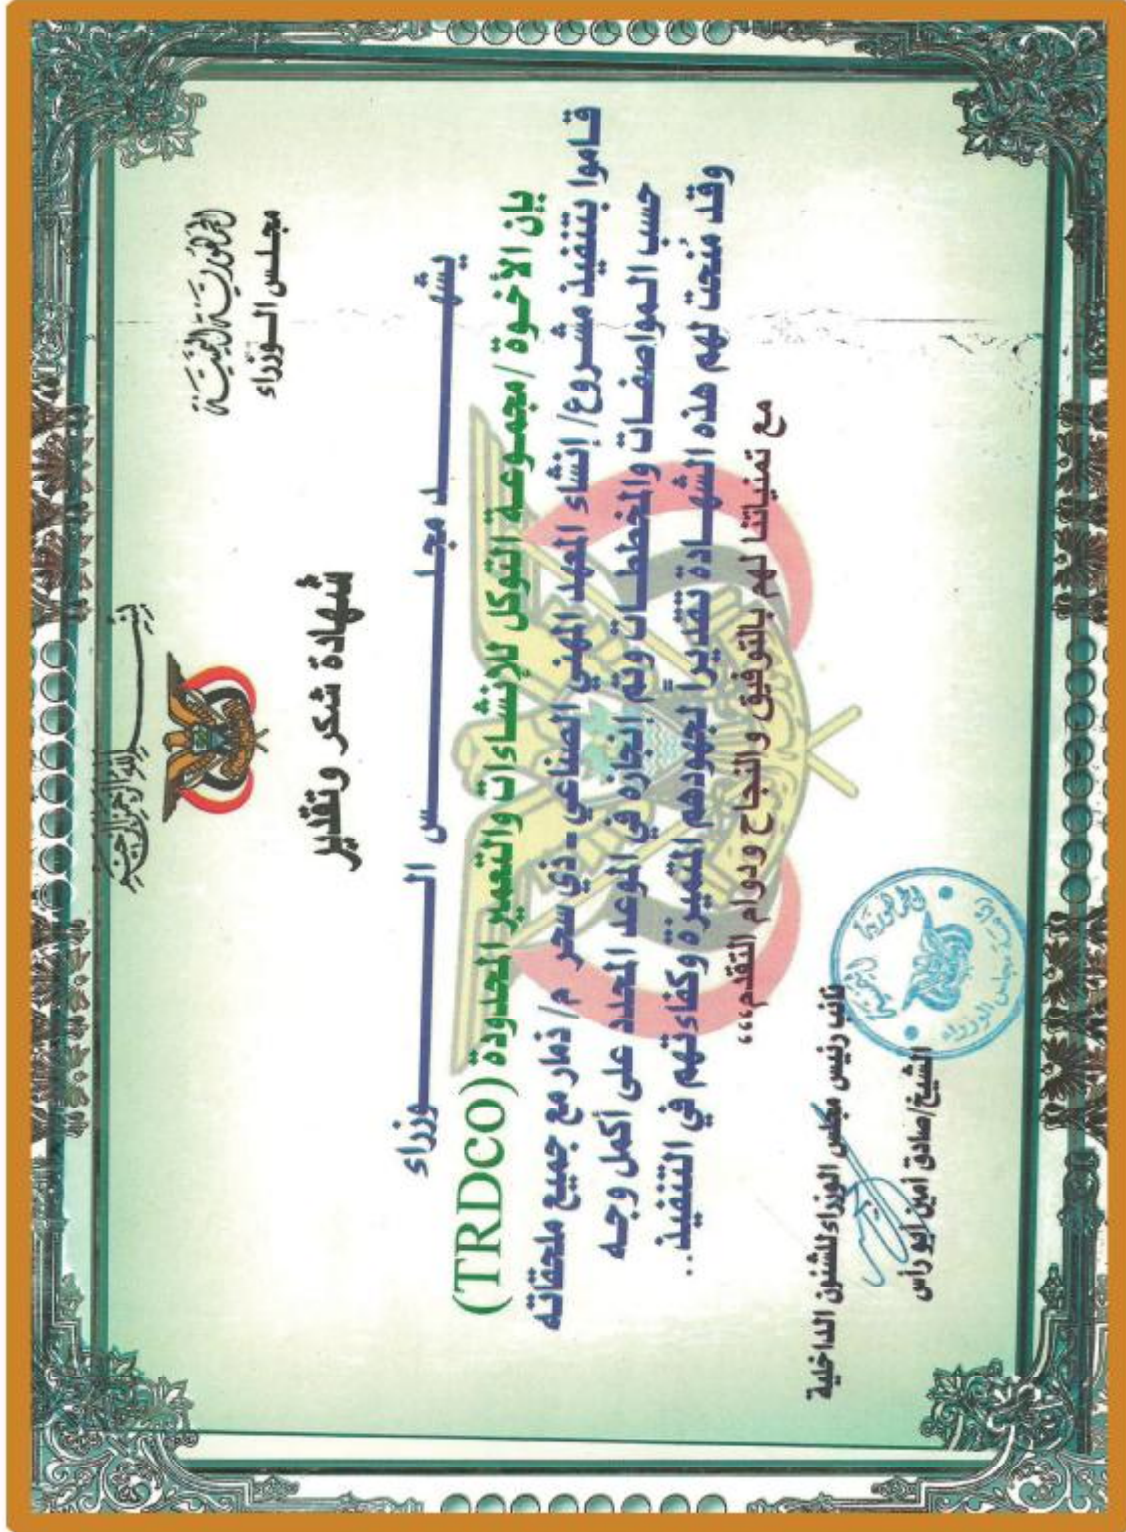 بسم الله الرحمن الرحيم
الجمهورية اليمنية
مجلس الوزراء
شهادة شكر وتقدير
يشهد مجلس الوزراء
بإن الأخوة/مجموعة التوكل للإنشاءات والتعمير المحدودة (TRDCO)
قاموا بتنفيذ مشروع/ إنشاء المعهد المهني الصناعي - ذي سحر م/ ذمار مع جميع ملحقاته
حسب المواصفات والمخططات وتم إنجازه في الموعد المحدد على أكمل وجه
وقد مُنحت لهم هذه الشهادة تقديراً لجهودهم المتميزة وكفاءتهم في التنفيذ..
مع تمنياتنا لهم بالتوفيق والنجاح ودوام التقدم،،،
نائب رئيس مجلس الوزراء للشئون الداخلية
الشيخ/صادق أمين أبو رأس
الجمهورية اليمنية
مجلس الوزراء